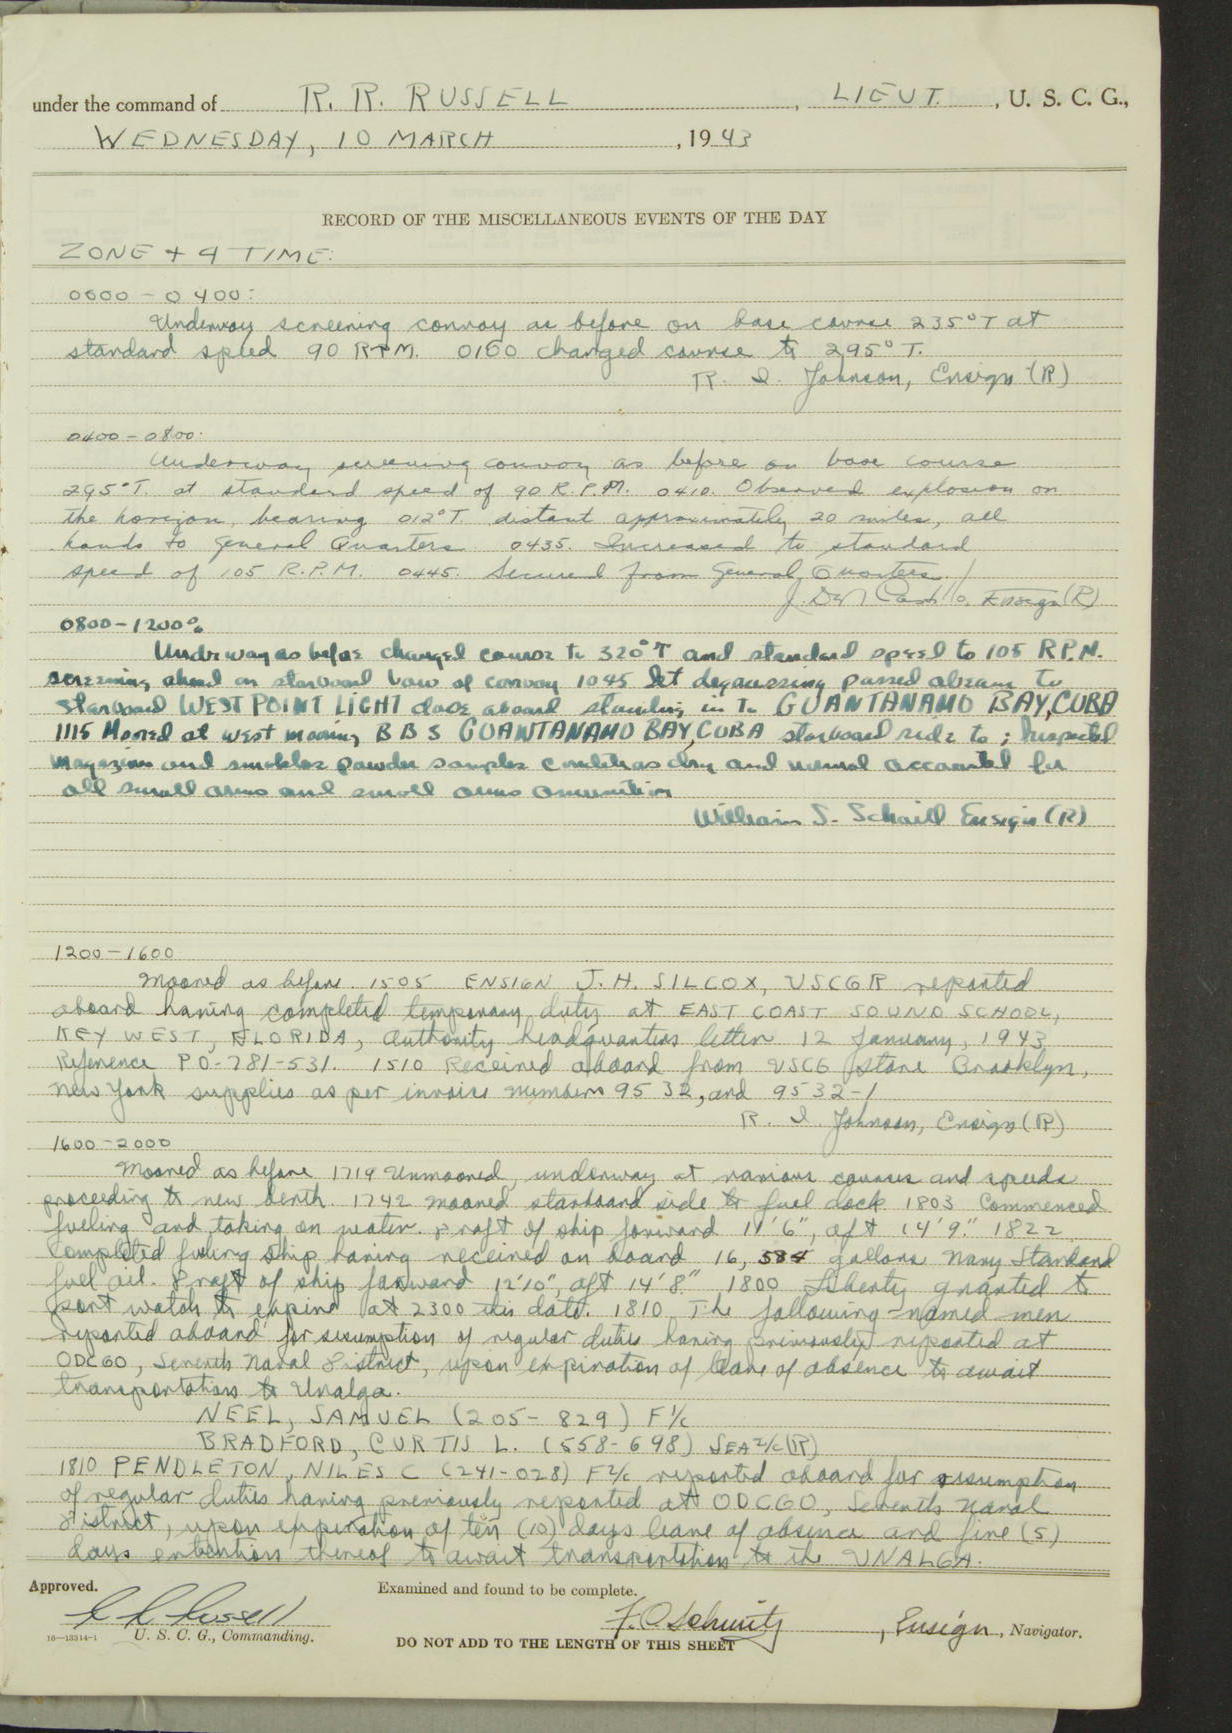 under the command of R. R. RUSSELL, LIEUT., U. S. C. G.,
WEDNESDAY, 10 MARCH, 1943
RECORD OF THE MISCELLANEOUS EVENTS OF THE DAY
ZONE + 4 TIME:
0000-0400:
Underway screening convoy as before on base course 235°T at
standard speed 90 RPM. 0100 changed course to 295°T.
R. I. Johnson, Ensign (R)
0400-0800:
Underway screening convoy as before on base course
295°T. at standard speed of 90 R.P.M. 0410. Observed explosion on
the horizon, bearing 012°T. distant approximately 20 miles, all
hands to General Quarters 0435. Increased to standard
speed of 105 R.P.M. 0445. Secured from General Quarters.
Ensign (R)
0800-1200:
Underway as before changed course to 320°T and standard speed to 105 R.P.M.
screening ahead on starboard bow of convoy 1045 degaussing passed abeam to
starboard WEST POINT LIGHT close aboard standing in to GUANTANAMO BAY, CUBA
1115 Moored at west mooring B B S GUANTANAMO BAY, CUBA starboard side to; Inspected
magazines and smokeless powder samples conditions dry and normal accounted for
all small arms and small arms amunition
William S. Schaill Ensign (R)
1200-1600
Moored as before. 1505 ENSIGN J. H. SILCOX, USCGR reported
aboard having completed temporary duty at EAST COAST SOUND SCHOOL,
KEY WEST, FLORIDA, authority headquarters letter 12 January, 1943
Reference PO-781-531. 1510 Received aboard from USCG store Brooklyn,
New York supplies as per invoice numbers 9532, and 9532-1
R. I. Johnson, Ensign (R)
1600-2000
Moored as before 1719 Unmoored, underway at various courses and speeds
proceeding to new berth. 1742 moored starboard side to fuel dock 1803 Commenced
fueling and taking on water. Draft of ship forward 11'6", aft 14'9". 1822
Completed fueling ship having received on board 16,584 gallons Navy Standard
fuel oil. Draft of ship forward 12'10", aft 14'8" 1800 Liberty granted to
port watch to expire at 2300 this date. 1810 The following-named men
reported aboard for resumption of regular duties having previously reported at
ODCGO, Seventh Naval District, upon expiration of leave of absence to await
transportation to Unalga.
NEEL, SAMUEL (205-829) F1/c
BRADFORD, CURTIS L. (558-698) SEA2/c (R)
1810 PENDLETON, NILES C (241-028) F2/c reported aboard for resumption
of regular duties having previously reported at ODCGO, Seventh Naval
District, upon expiration of ten (10) days leave of absence and five (5)
days extention thereof to await transportation to the UNALGA.
Approved. Examined and found to be complete.
R R Russell F. O. Schmitz, Ensign, Navigator.
16-13314-1 U. S. C. G., Commanding.
DO NOT ADD TO THE LENGTH OF THIS SHEET